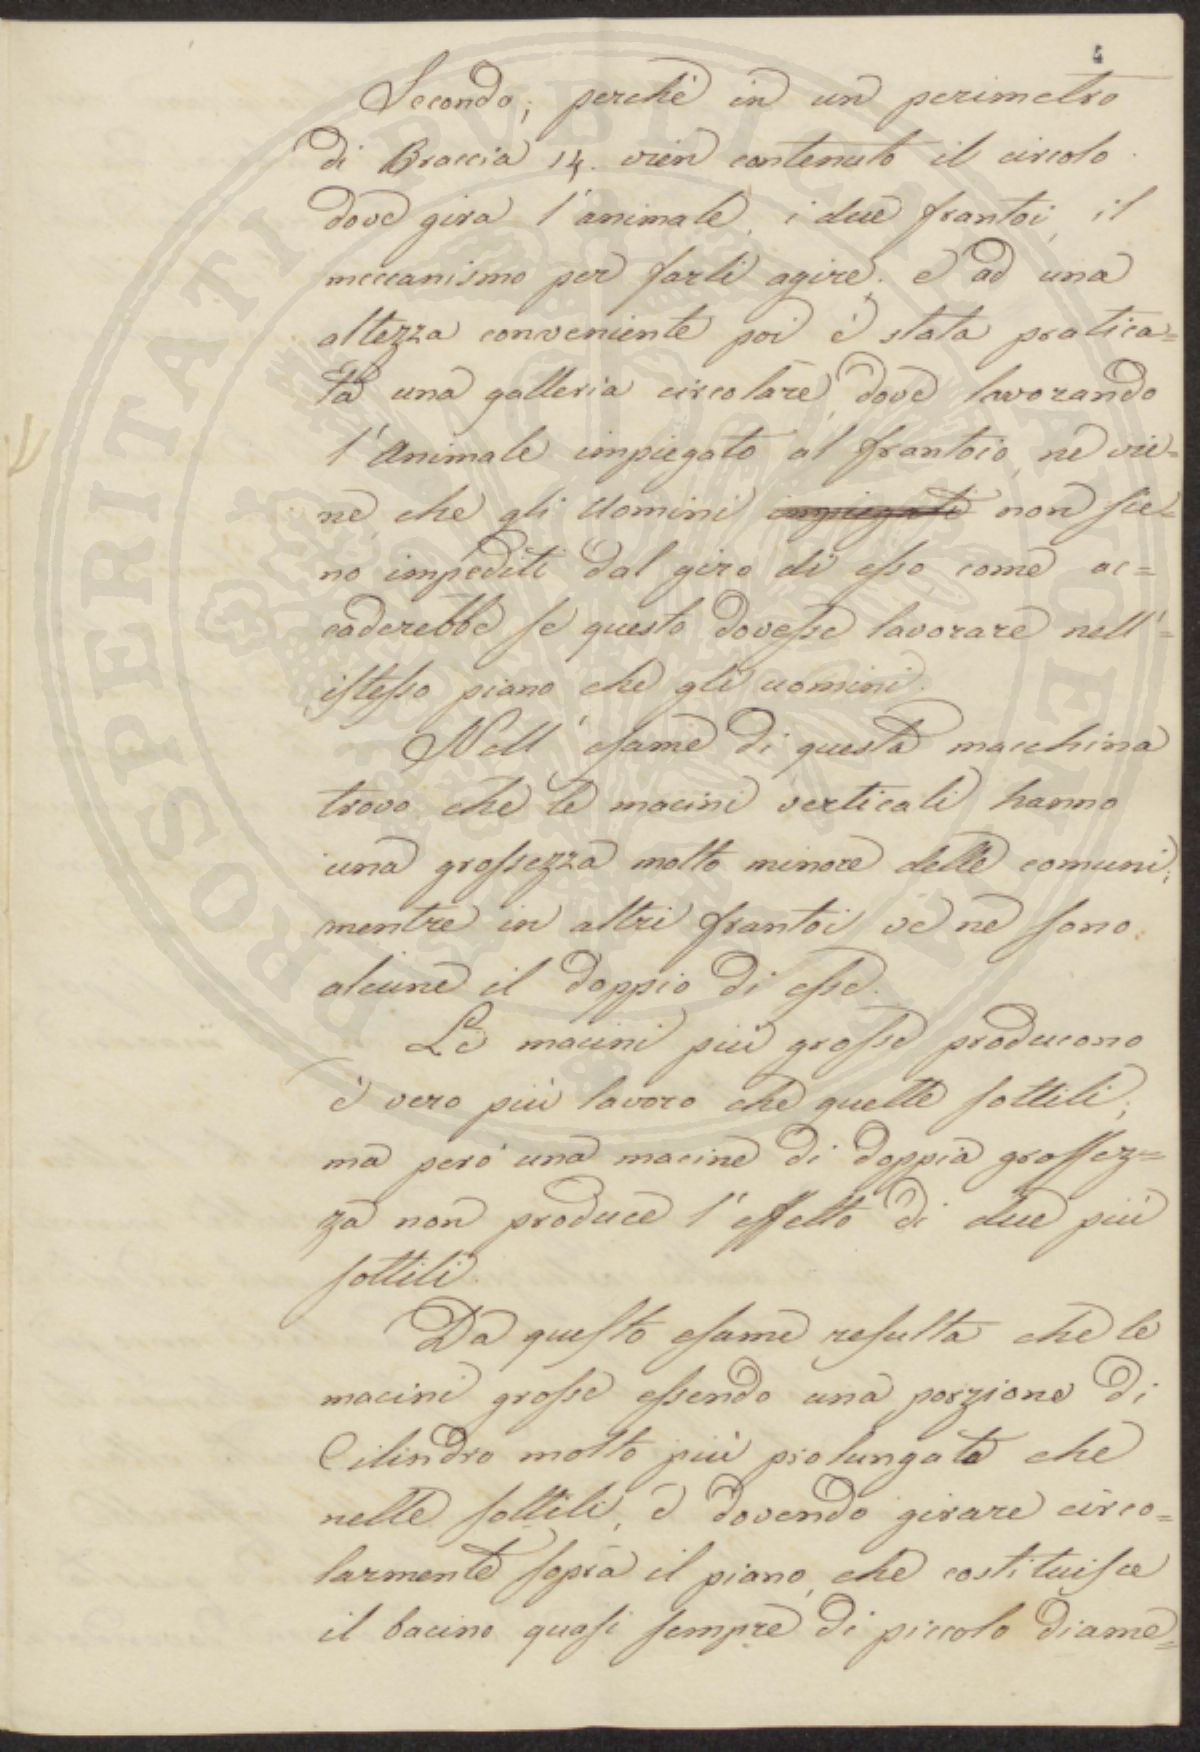 4
Secondo, perchè in un perimetro
di Braccia 14. vien contenuto il circolo
dove gira l'animale, i due frantoi, il
meccanismo per farli agire; e ad una
altezza conveniente poi è stata pratica=
ta una galleria circolare, dove lavorando
l'Animale impiegato al frantoio, ne vie=
ne, che gli Uomini impiegati non sie=
no impediti dal giro di esso come ac=
caderebbe se questo dovesse lavorare nell'=
istesso piano che gli uomini.
Nell'esame di questa macchina
trovo che le macini verticali hanno
una grossezza molto minore delle comuni;
mentre in altri frantoi ve ne sono
alcune il doppio di esse.
Le macini più grosse producono
è vero più lavoro che quelle sottili;
ma però una macine di doppia grossez=
za non produce l'effetto di due più
sottili.
Da questo esame resulta che le
macini grosse essendo una porzione di
Cilindro molto più prolungata che
nelle sottili, e dovendo girare circo=
larmente sopra il piano, che costituisce
il bacino quasi sempre di piccolo diame=
PROSPERITATI PUBLICAE AUGENDAE